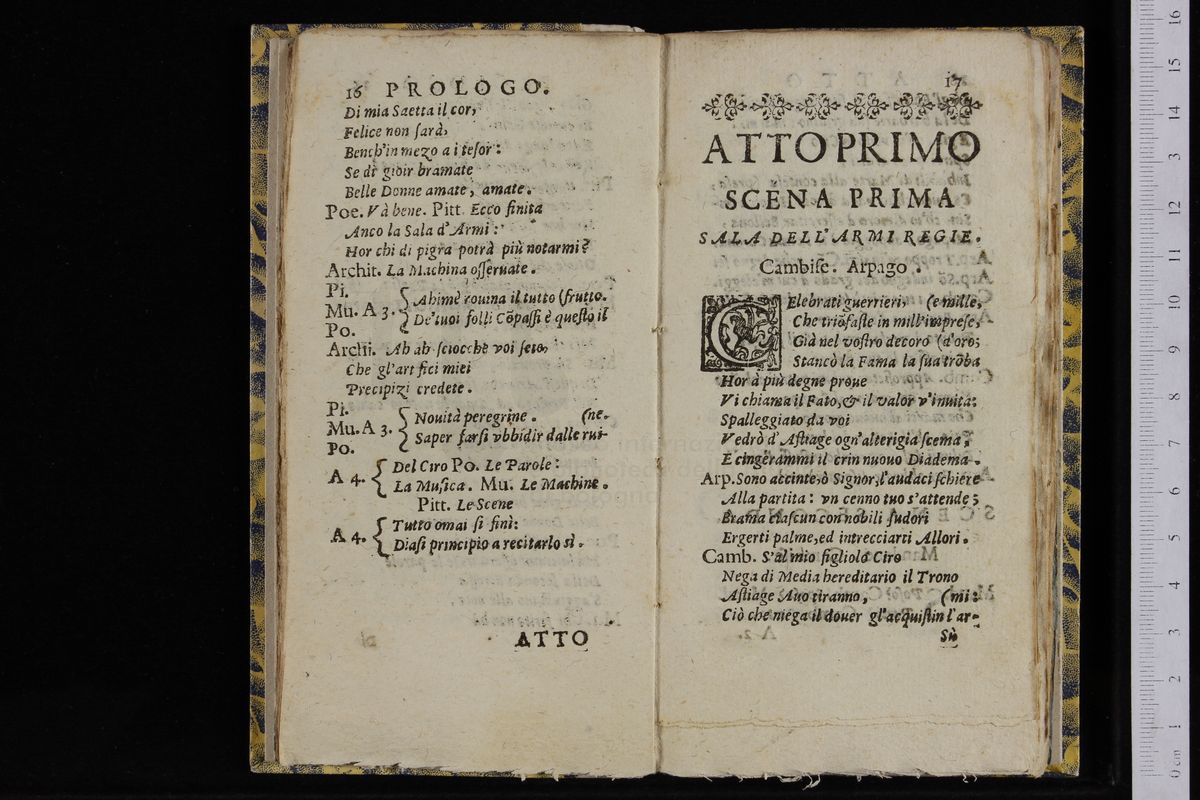 16 PROLOGO.
Di mia Saetta il cor,
Felice non sarà,
Bench'in mezo a i tesor:
Se di gioir bramate
Belle Donne amate, amate.
Poe. Và bene. Pitt. Ecco finita
Anco la Sala d'Armi:
Hor chi di pigra potrà più notarmi?
Archit. La Machina osseruate.
Pi.
Mu. A 3.
Po.
Ahimè rouina il tutto (frutto.
De'tuoi folli Cõpassi è questo il
Archi. Ah ah sciocchè voi sete,
Che gl'artifici miei
Precipizi credete.
Pi.
Mu. A 3.
Po.
Nouità peregrine. (ne.
Saper farsi vbbidir dalle rui-
A 4. Del Ciro Po. Le Parole:
La Musica. Mu. Le Machine.
Pitt. Le Scene
A 4. Tutto omai si finì:
Diasi principio a recitarlo sì.
ATTO
17
ATTO PRIMO
SCENA PRIMA
SALA DELL'ARMI REGIE.
Cambise. Arpago.
CElebrati guerrieri, (e mille,
Che triõfaste in mill'imprese,
Già nel vostro decoro (d'oro;
Stancò la Fama la sua trõba
Hor à più degne proue
Vi chiama il Fato, & il valor v'inuita:
Spalleggiato da voi
Vedrò d'Astiage ogn'alterigia scema,
E cingerammi il crin nuouo Diadema.
Arp. Sono accinte, ò Signor, l'audaci schiere
Alla partita: vn cenno tuo s'attende;
Brama ciascun con nobili sudori
Ergerti palme, ed intrecciarti Allori.
Camb. S'al mio figliolo Ciro
Nega di Media hereditario il Trono
Astiage Auo tiranno, (mi:
Ciò che niega il douer gl'acquistin l'ar-
Sù